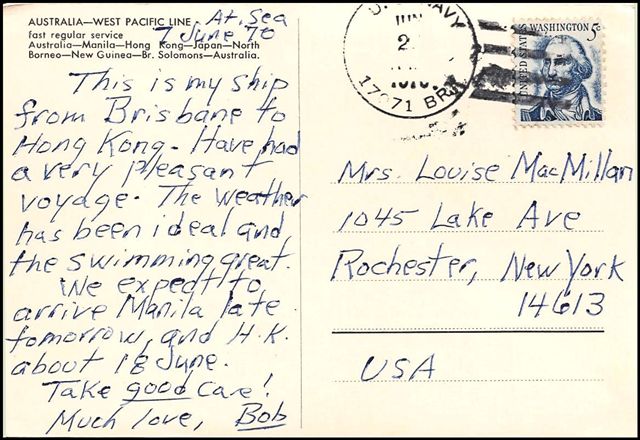 AUSTRALIA—WEST PACIFIC LINE
fast regular service
Australia—Manila—Hong Kong—Japan—North
Borneo—New Guinea—Br. Solomons—Australia.
At Sea
7 June 70
This is my ship
from Brisbane to
Hong Kong. Have had
a very pleasant
voyage. The weather
has been ideal and
the swimming great.
We expect to
arrive Manila late
tomorrow, and H.K.
about 18 June.
Take good care!
Much love, Bob
NAVY
JUN
2
17071 BR.
UNITED STATES
WASHINGTON 5c
Mrs. Louise MacMillan
1045 Lake Ave
Rochester, New York
14613
USA